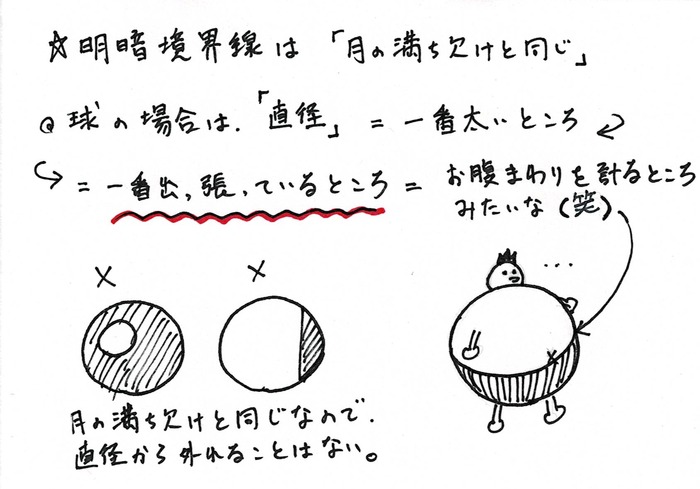 ☆明暗境界線は「月の満ち欠けと同じ」
◎球の場合は、「直径」=一番太いところ
=一番出っ張っているところ=お腹まわりを計るところ
みたいな(笑)
× ×
...
×
月の満ち欠けと同じなので、
直径から外れることはない。